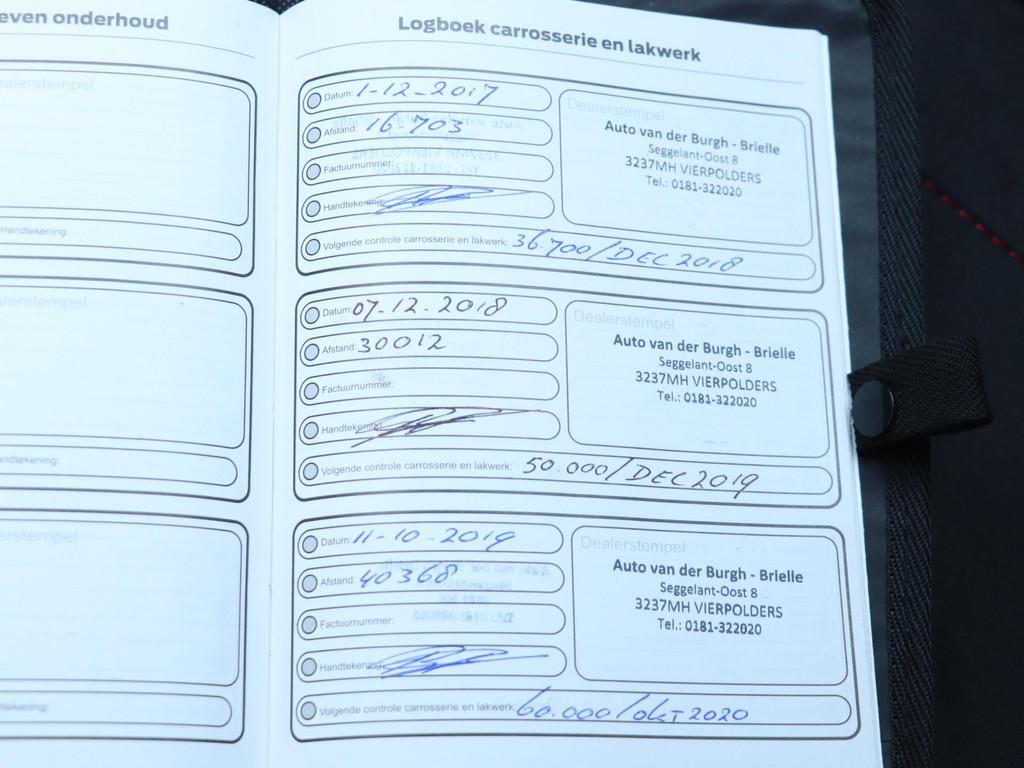 even onderhoud
alerstempel
Handtekening:
alerstempel
andtekening:
erstempel
dtekening:
Logboek carrosserie en lakwerk
Datum: 1-12-2017
Afstand: 16-703
Factuurnummer:
Handtekening:
Volgende controle carrosserie en lakwerk: 36.700/DEC 2018
Dealerstempel
Auto van der Burgh - Brielle
Seggelant-Oost 8
3237MH VIERPOLDERS
Tel.: 0181-322020
Datum: 07-12-2018
Afstand: 30012
Factuurnummer:
Handtekening:
Volgende controle carrosserie en lakwerk: 50.000/DEC 2019
Dealerstempel
Auto van der Burgh - Brielle
Seggelant-Oost 8
3237MH VIERPOLDERS
Tel.: 0181-322020
Datum: 11-10-2019
Afstand: 40368
Factuurnummer:
Handtekening:
Volgende controle carrosserie en lakwerk: 60.000/okt 2020
Dealerstempel
Auto van der Burgh - Brielle
Seggelant-Oost 8
3237MH VIERPOLDERS
Tel.: 0181-322020